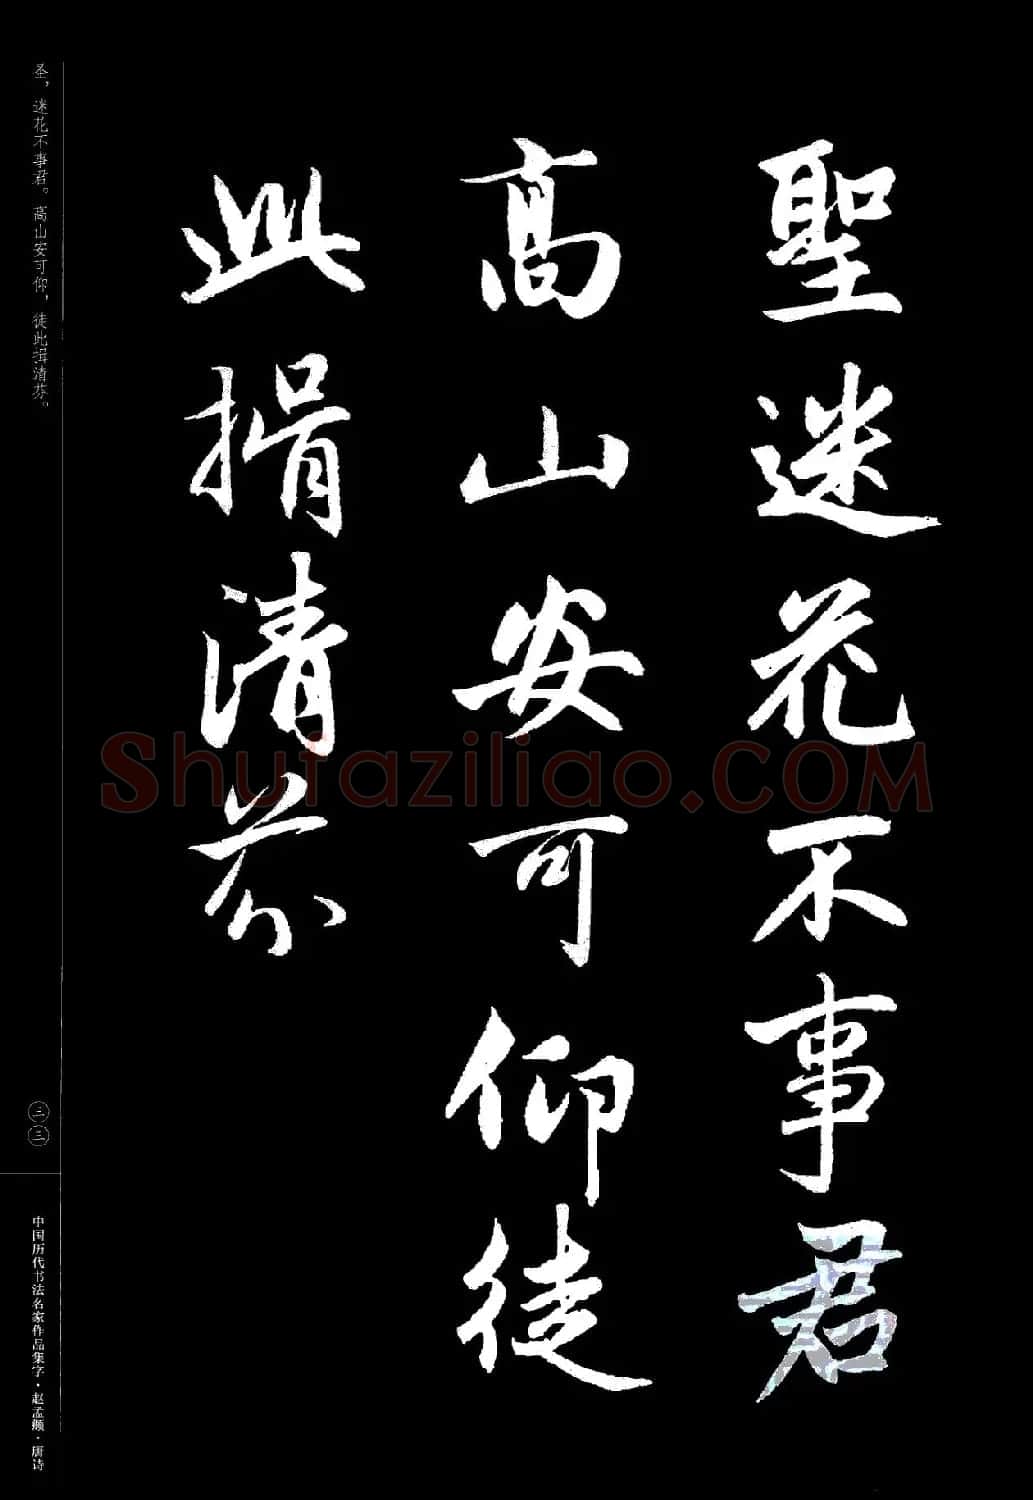 聖迷花不事君
高山安可仰徒
此揖清芬
圣，迷花不事君。高山安可仰，徒此揖清芬。
三三
中国历代书法名家作品集字·赵孟頫·唐诗
Shufaziliao.COM